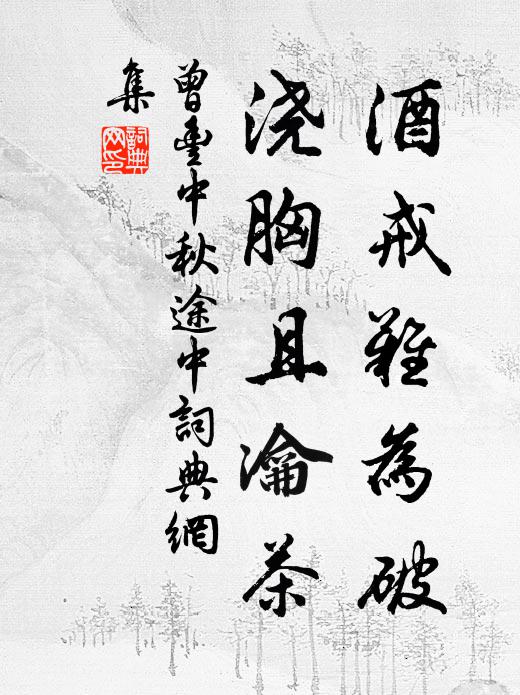 酒戒難為破
浇胸且瀹茶
曾豊中秋途中詞典網
集
詞典
网印